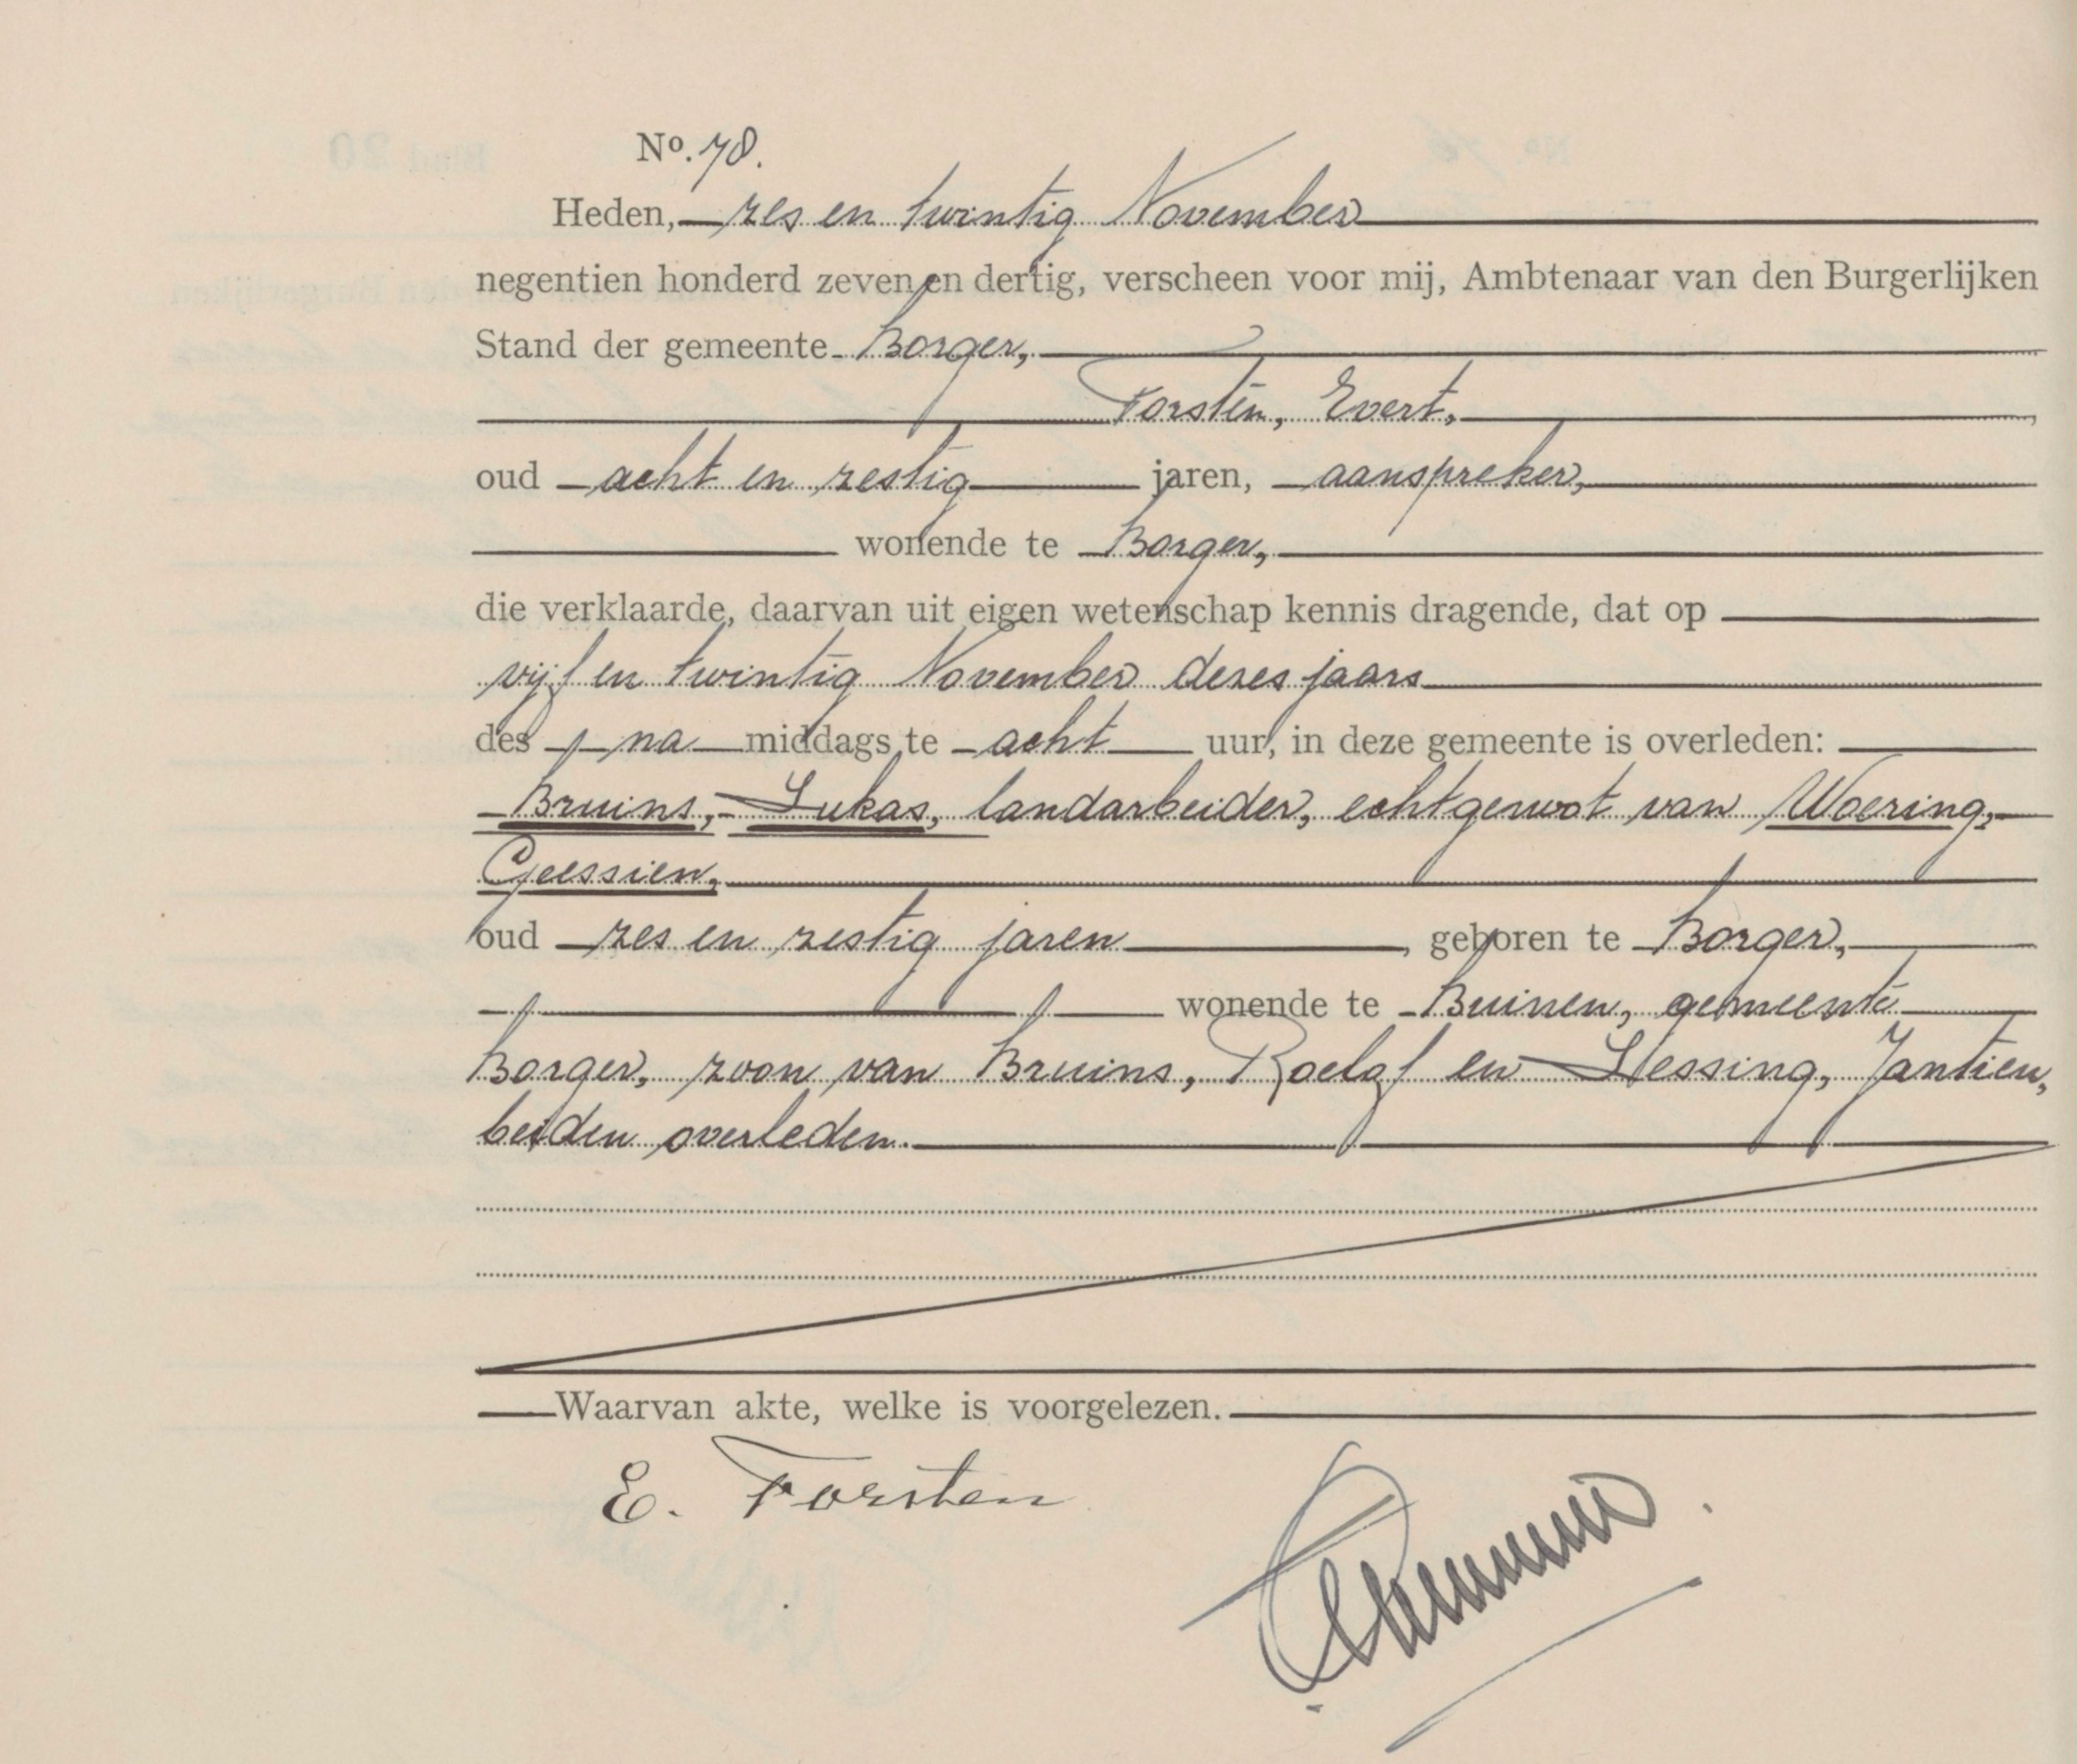 No. 78.
Heden, zes en twintig November
negentien honderd zeven en dertig, verscheen voor mij, Ambtenaar van den Burgerlijken
Stand der gemeente Borger,
Forsten, Evert,
oud acht en zestig jaren, aanspreker,
wonende te Borger,
die verklaarde, daarvan uit eigen wetenschap kennis dragende, dat op
vijf en twintig November dezes jaars
des na middags te acht uur, in deze gemeente is overleden:
Bruins, Lukas, landarbeider, echtgenoot van Woering,
Geessien,
oud zes en zestig jaren, geboren te Borger,
wonende te Buinen, gemeente
Borger, zoon van Bruins, Roelof en Hessing, Jantien,
beiden overleden.
Waarvan akte, welke is voorgelezen.
E. Forsten